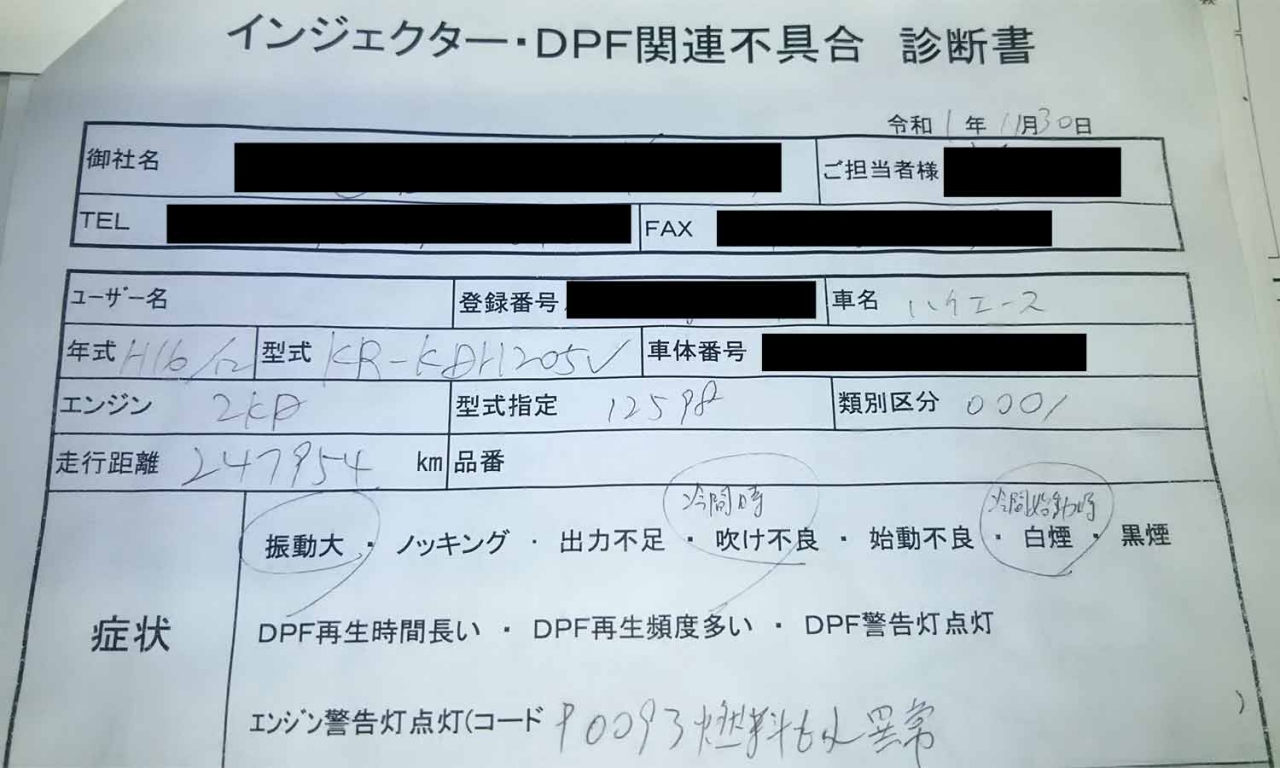 インジェクター・DPF関連不具合 診断書
令和 1 年 11月30日
御社名 ご担当者様
TEL FAX
ユーザー名 登録番号 車名 ハイエース
年式 H16/12 型式 KR-KDH205V 車体番号
エンジン 2KD 型式指定 12598 類別区分 0001
走行距離 247954 km 品番
冷間時 冷間始動時
振動大 ・ ノッキング ・ 出力不足 ・ 吹け不良 ・ 始動不良 ・ 白煙 ・ 黒煙
症状
DPF再生時間長い ・ DPF再生頻度多い ・ DPF警告灯点灯
エンジン警告灯点灯(コード P0093 燃料もれ異常 )